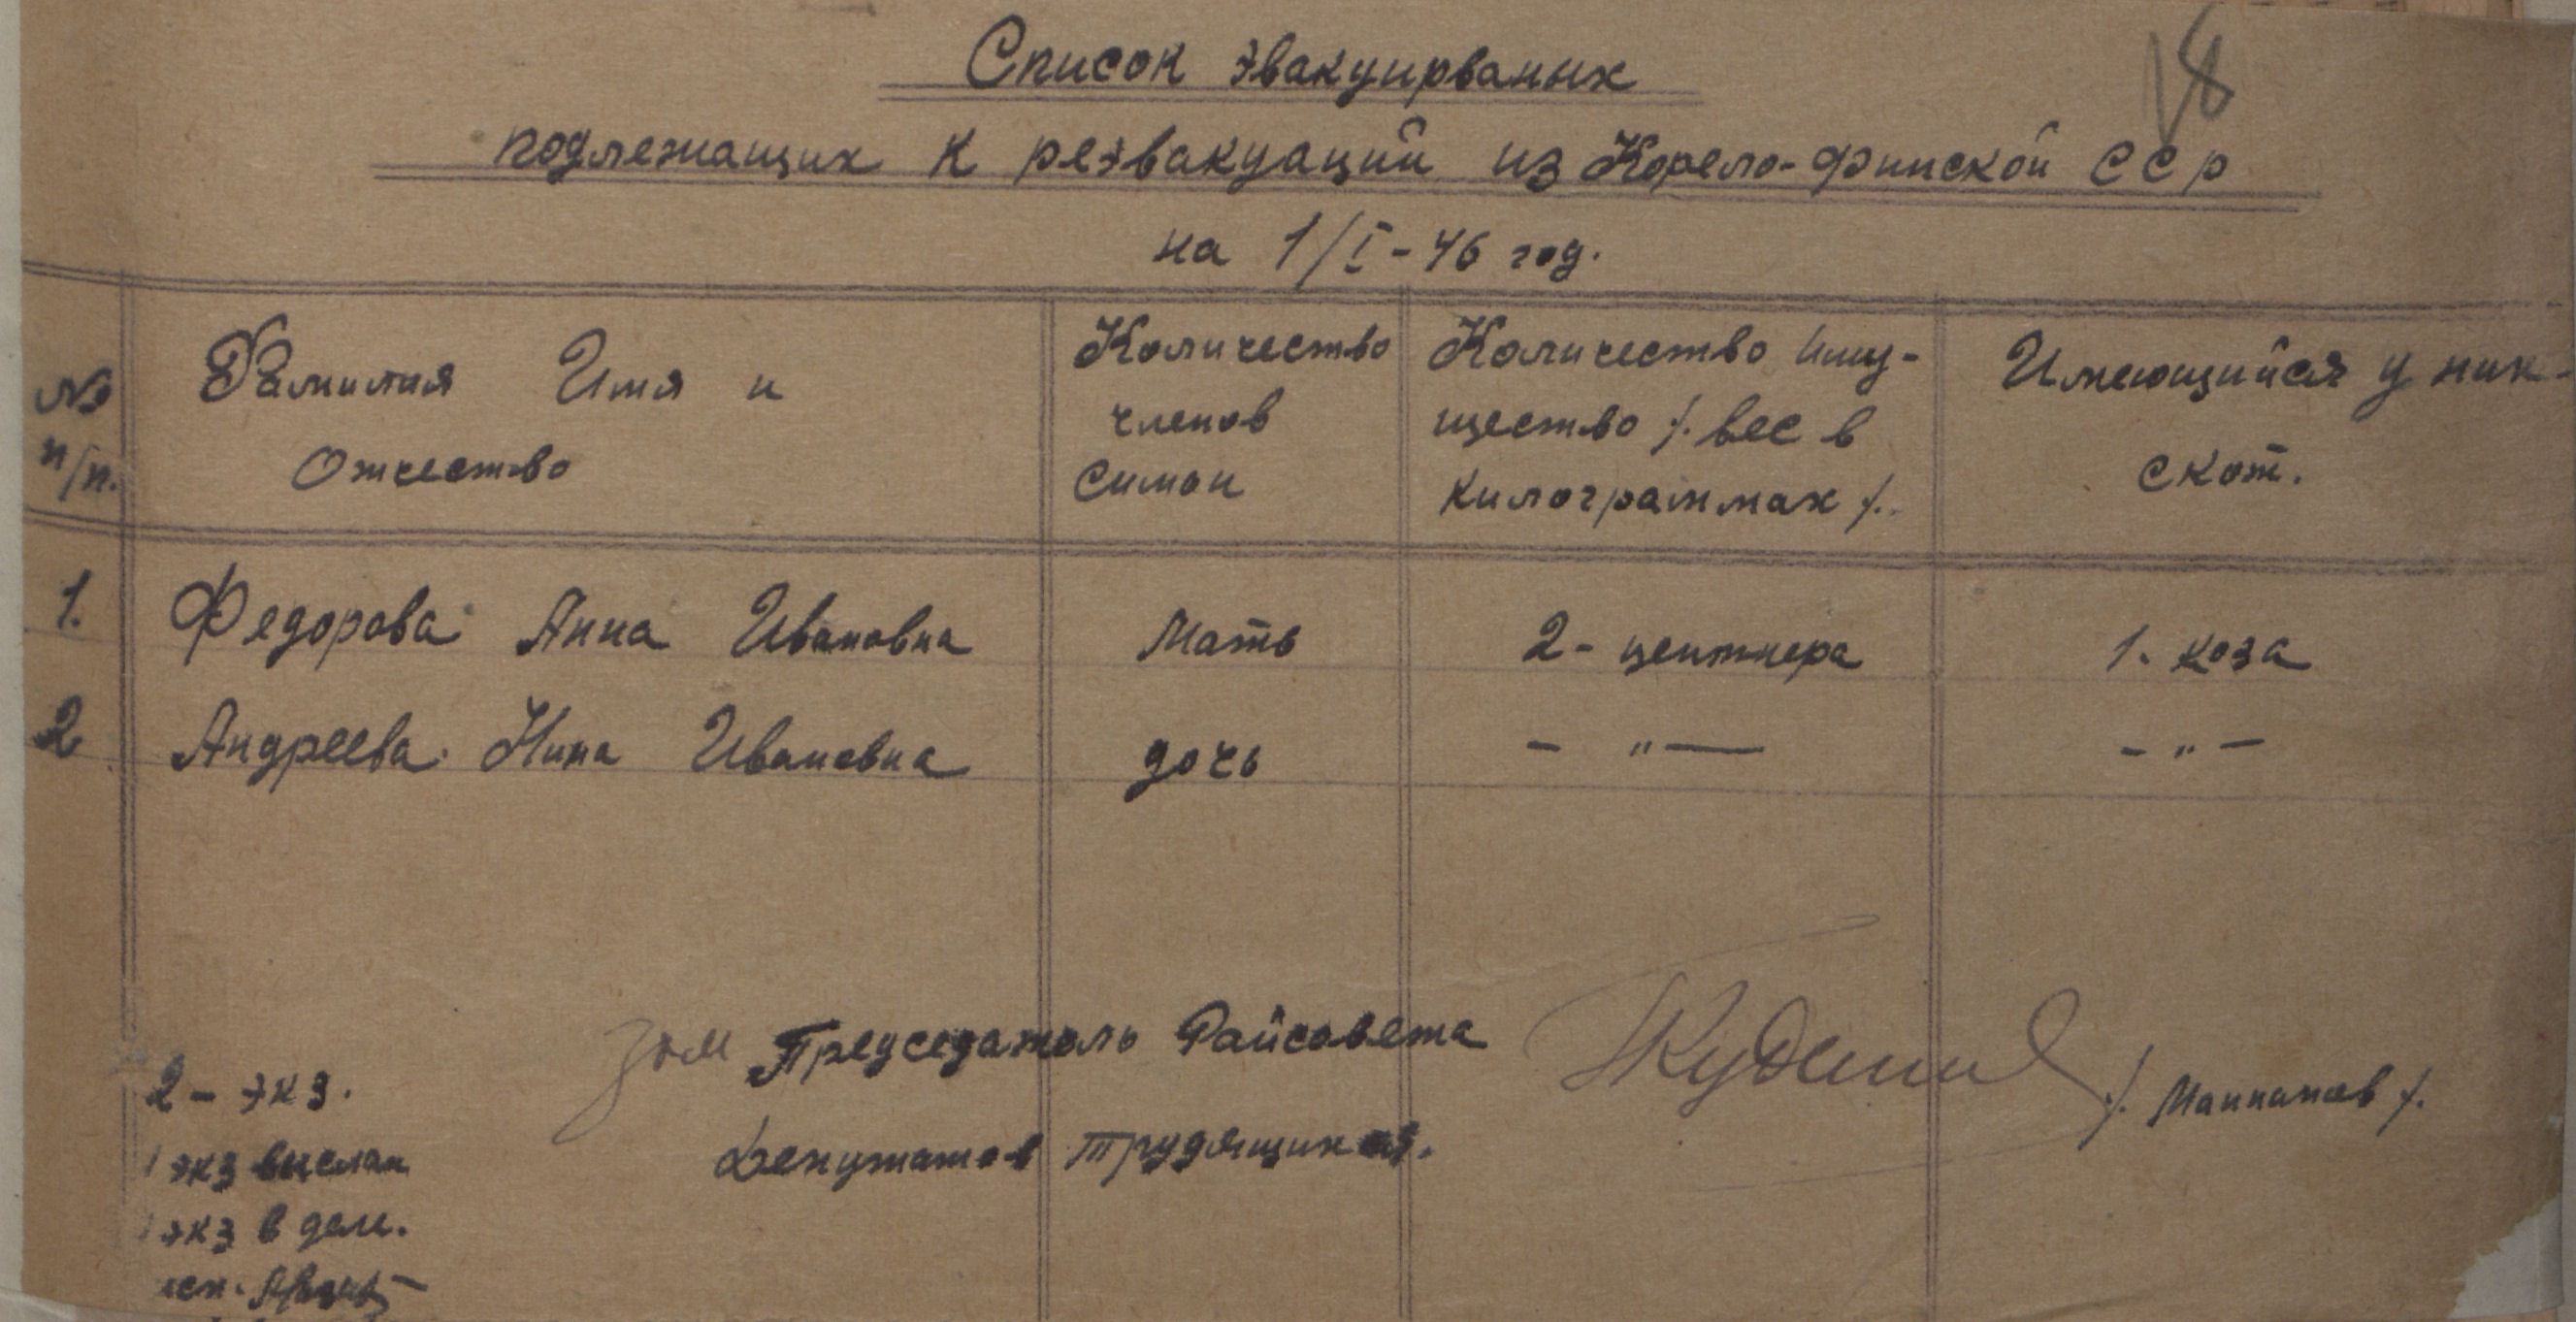 18
Список эвакуирваных
подлежащих к реэвакуаций из Корело-Финской ССР
на 1/I-46 год.
№ п/п.
Фамилия Имя и
Отчество
Количество
членов
симои
Количество иму-
щество /. вес в
килограммах /.
Имеющийся у них-
скот.
1. Федорова Анна Ивановна Мать 2- центнера 1. коза
2 Андреева Нина Ивановна дочь - "— - " -
зам Председатель Райсовета
Депутатов трудящихся. /. Маннанов /.
2- экз.
1 экз выслан
1 экз в дом.
исп.